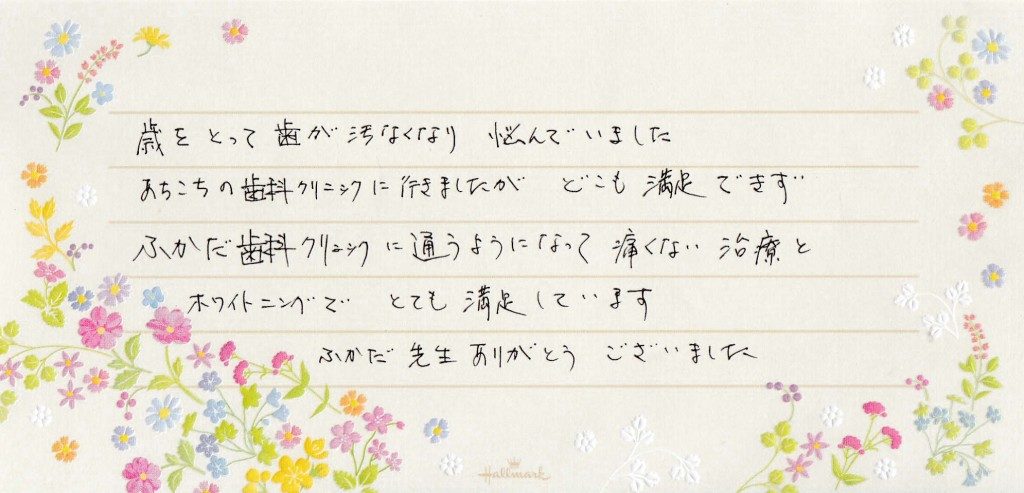 歳をとって歯が汚なくなり 悩んでいました
あちこちの歯科クリニックに行きましたが どこも満足できず
ふかだ歯科クリニックに通うようになって痛くない治療と
ホワイトニングで とても満足しています
ふかだ先生ありがとう ございました
Hallmark